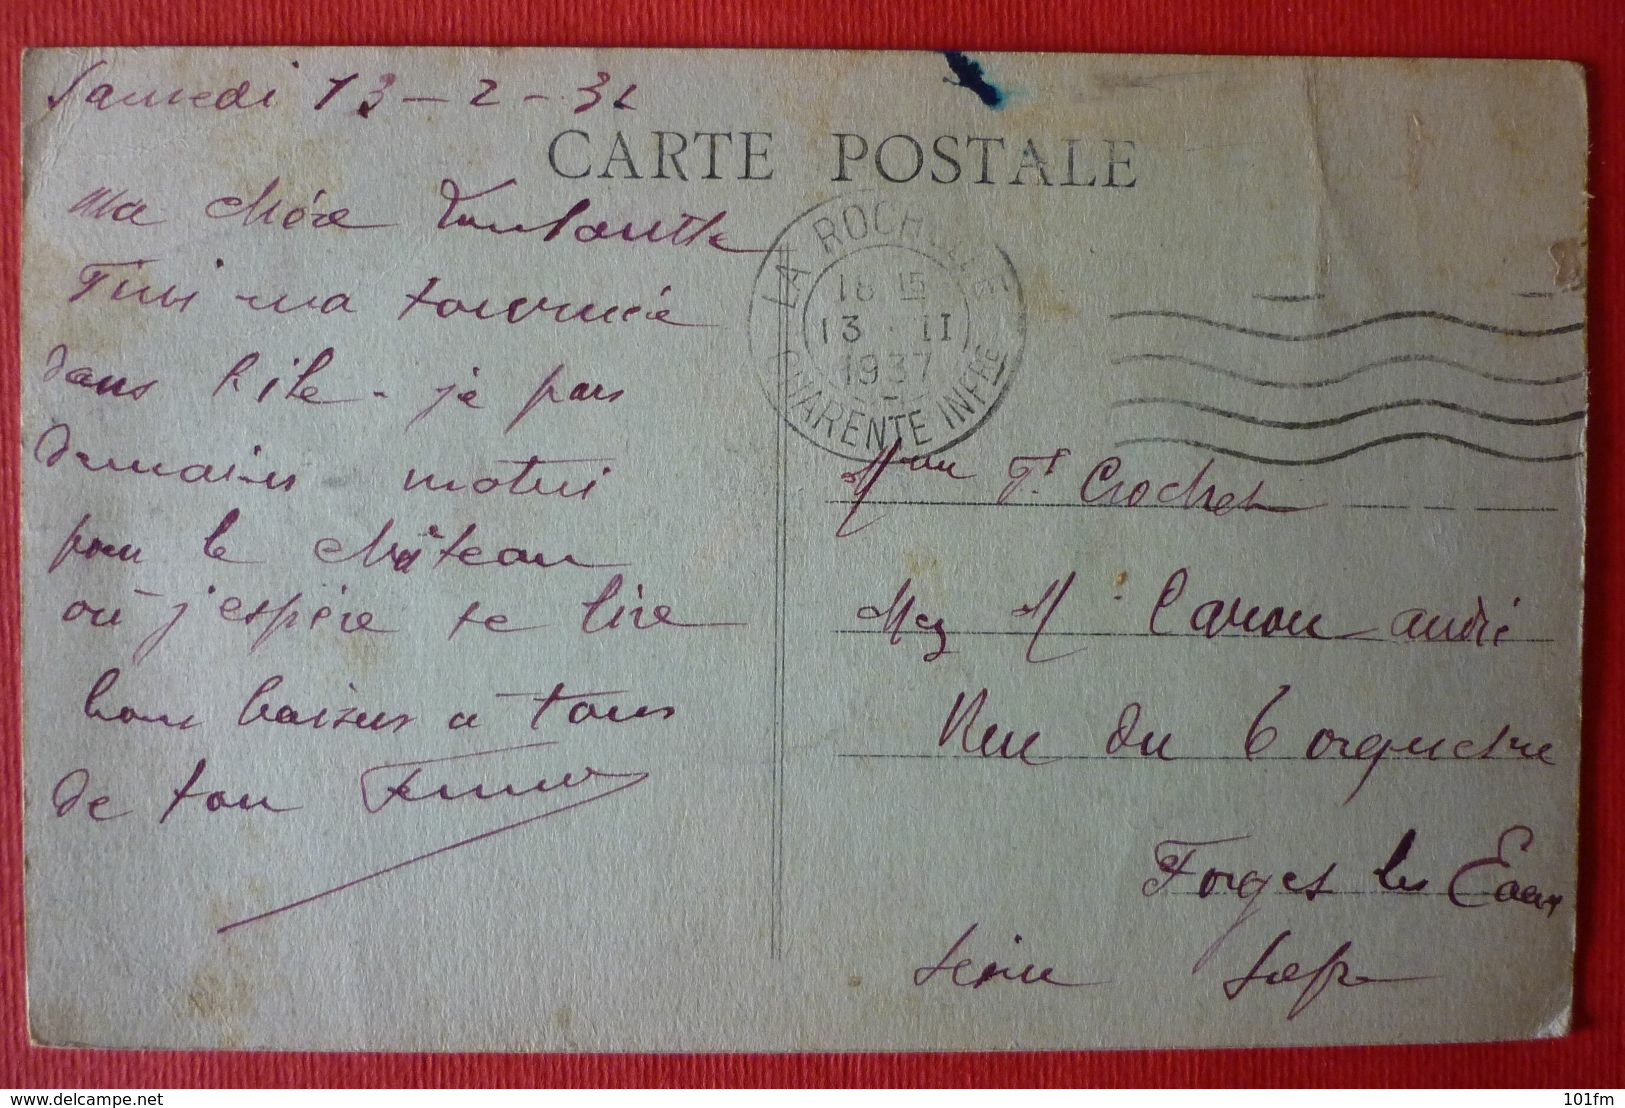 Samedi 13-2-37
CARTE POSTALE
Ma chère
Finis ma tournée
dans l'île - je pars
demain matin
pour le château
où j'espère te lire
bons baisers à tous
de ton
LA ROCHELLE
18 15
13 II
1937
CHARENTE INFRE
Mme Crochet
chez M. Caron André
Rue du
Forges les Eaux
Seine Infre
www.delcampe.net
101fm